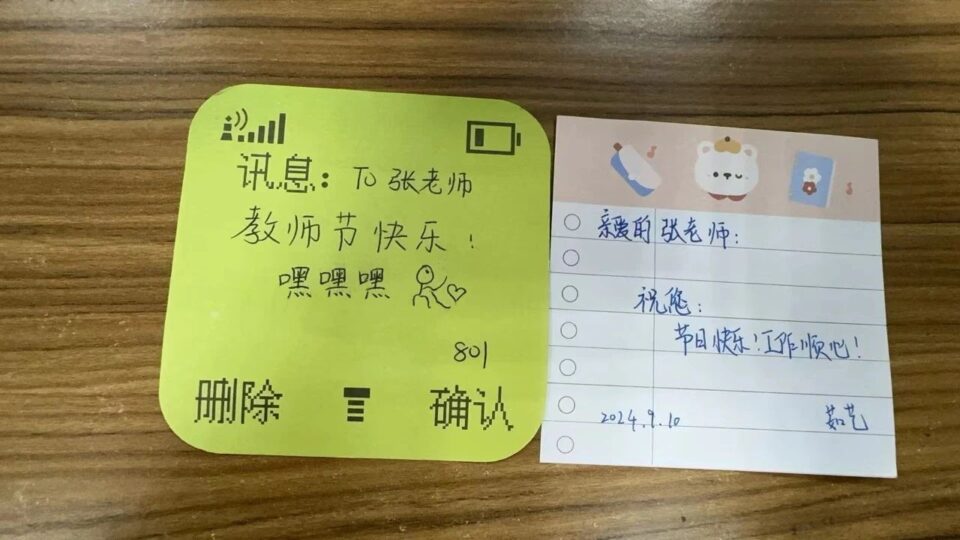 讯息：To 张老师
教师节快乐！
嘿嘿嘿
801
删除 确认
亲爱的张老师：
祝您：
节日快乐！工作顺心！
2024.9.10 茹艺